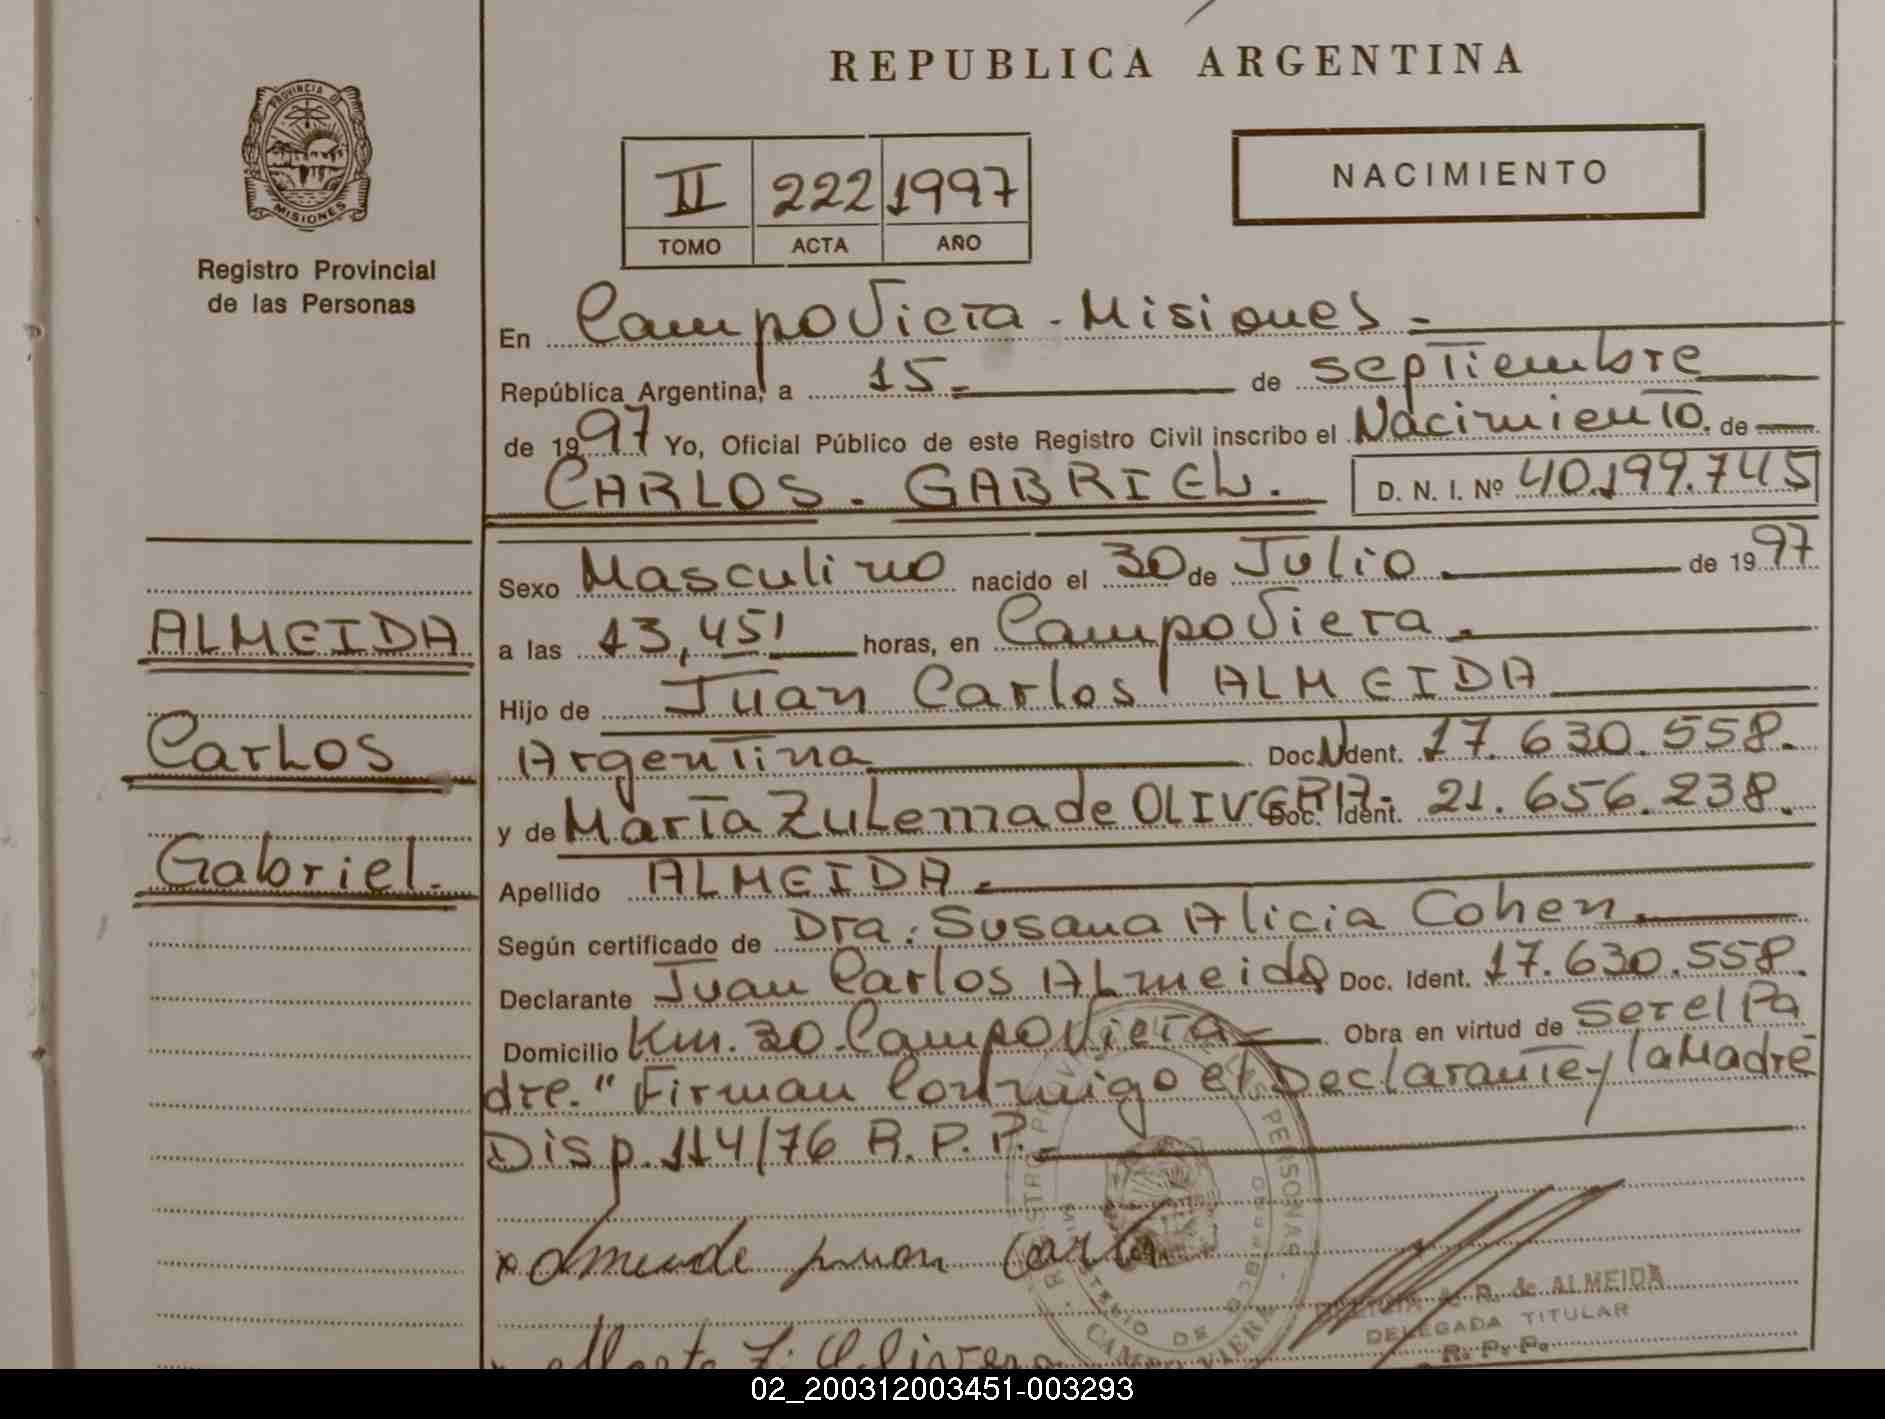 REPUBLICA ARGENTINA
PROVINCIA DE
MISIONES
Registro Provincial
de las Personas
II 222 1997
TOMO ACTA AÑO
NACIMIENTO
En Campo Viera - Misiones -
República Argentina, a 15 - de septiembre
de 1997 Yo, Oficial Público de este Registro Civil inscribo el Nacimiento. de
CARLOS. GABRIEL. D. N. I. Nº 40.199.745
Sexo Masculino nacido el 30 de Julio. de 1997
a las 13,45' horas, en Campo Viera.
Hijo de Juan Carlos ALMEIDA
Argentina Doc. Ident. 17.630.558.
y de María Zulema de OLIVERA- Doc. Ident. 21.656.238.
Apellido ALMEIDA.
Según certificado de Dra. Susana Alicia Cohen.
Declarante Juan Carlos ALmeida Doc. Ident. 17.630.558.
Domicilio Km. 30. Campo Viera - Obra en virtud de ser el Pa
dre." Firman Conmigo el Declarante y la Madre
Disp. 114/76 R.P.P.-
ALMEIDA
Carlos
Gabriel.
x Almeide juan Carlo
Z. Olivera
A. R. de ALMEIDA
DELEGADA TITULAR
R. P. P.
CAMPO VIERA
02_200312003451-003293